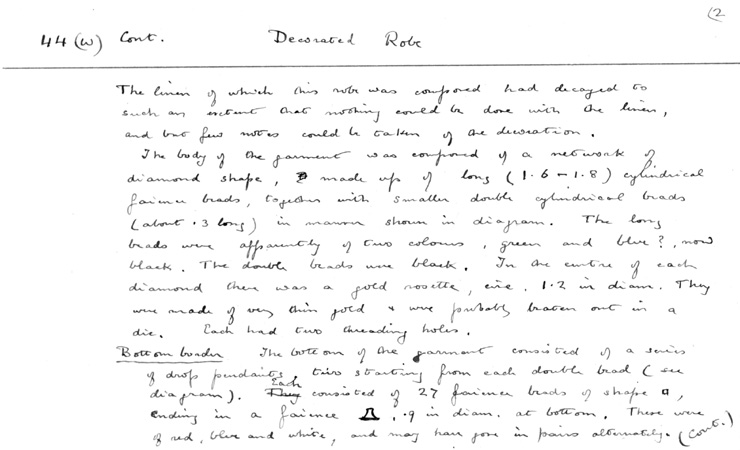 (2
44 (w) Cont. Decorated Robe
The linen of which this robe was composed had decayed to
such an extent that nothing could be done with the linen,
and but few notes could be taken of the decoration.
The body of the garment was composed of a network of
diamond shape, made up of long (1.6 - 1.8) cylindrical
faience beads, together with smaller double cylindrical beads
(about .3 long) in manner shown in diagram. The long
beads were apparently of two colours, green and blue?, now
black. The double beads were black. In the centre of each
diamond there was a gold rosette, circ. 1.2 in diam. They
were made of very thin gold & were probably beaten out in a
die. Each had two threading holes.
Bottom border The bottom of the garment consisted of a series
of drop pendants, two starting from each double bead (see
diagram). Each consisted of 27 faience beads of shape,
ending in a faience , .9 in diam. at bottom. These were
of red, blue and white, and may have gone in pairs alternately. (Cont.)